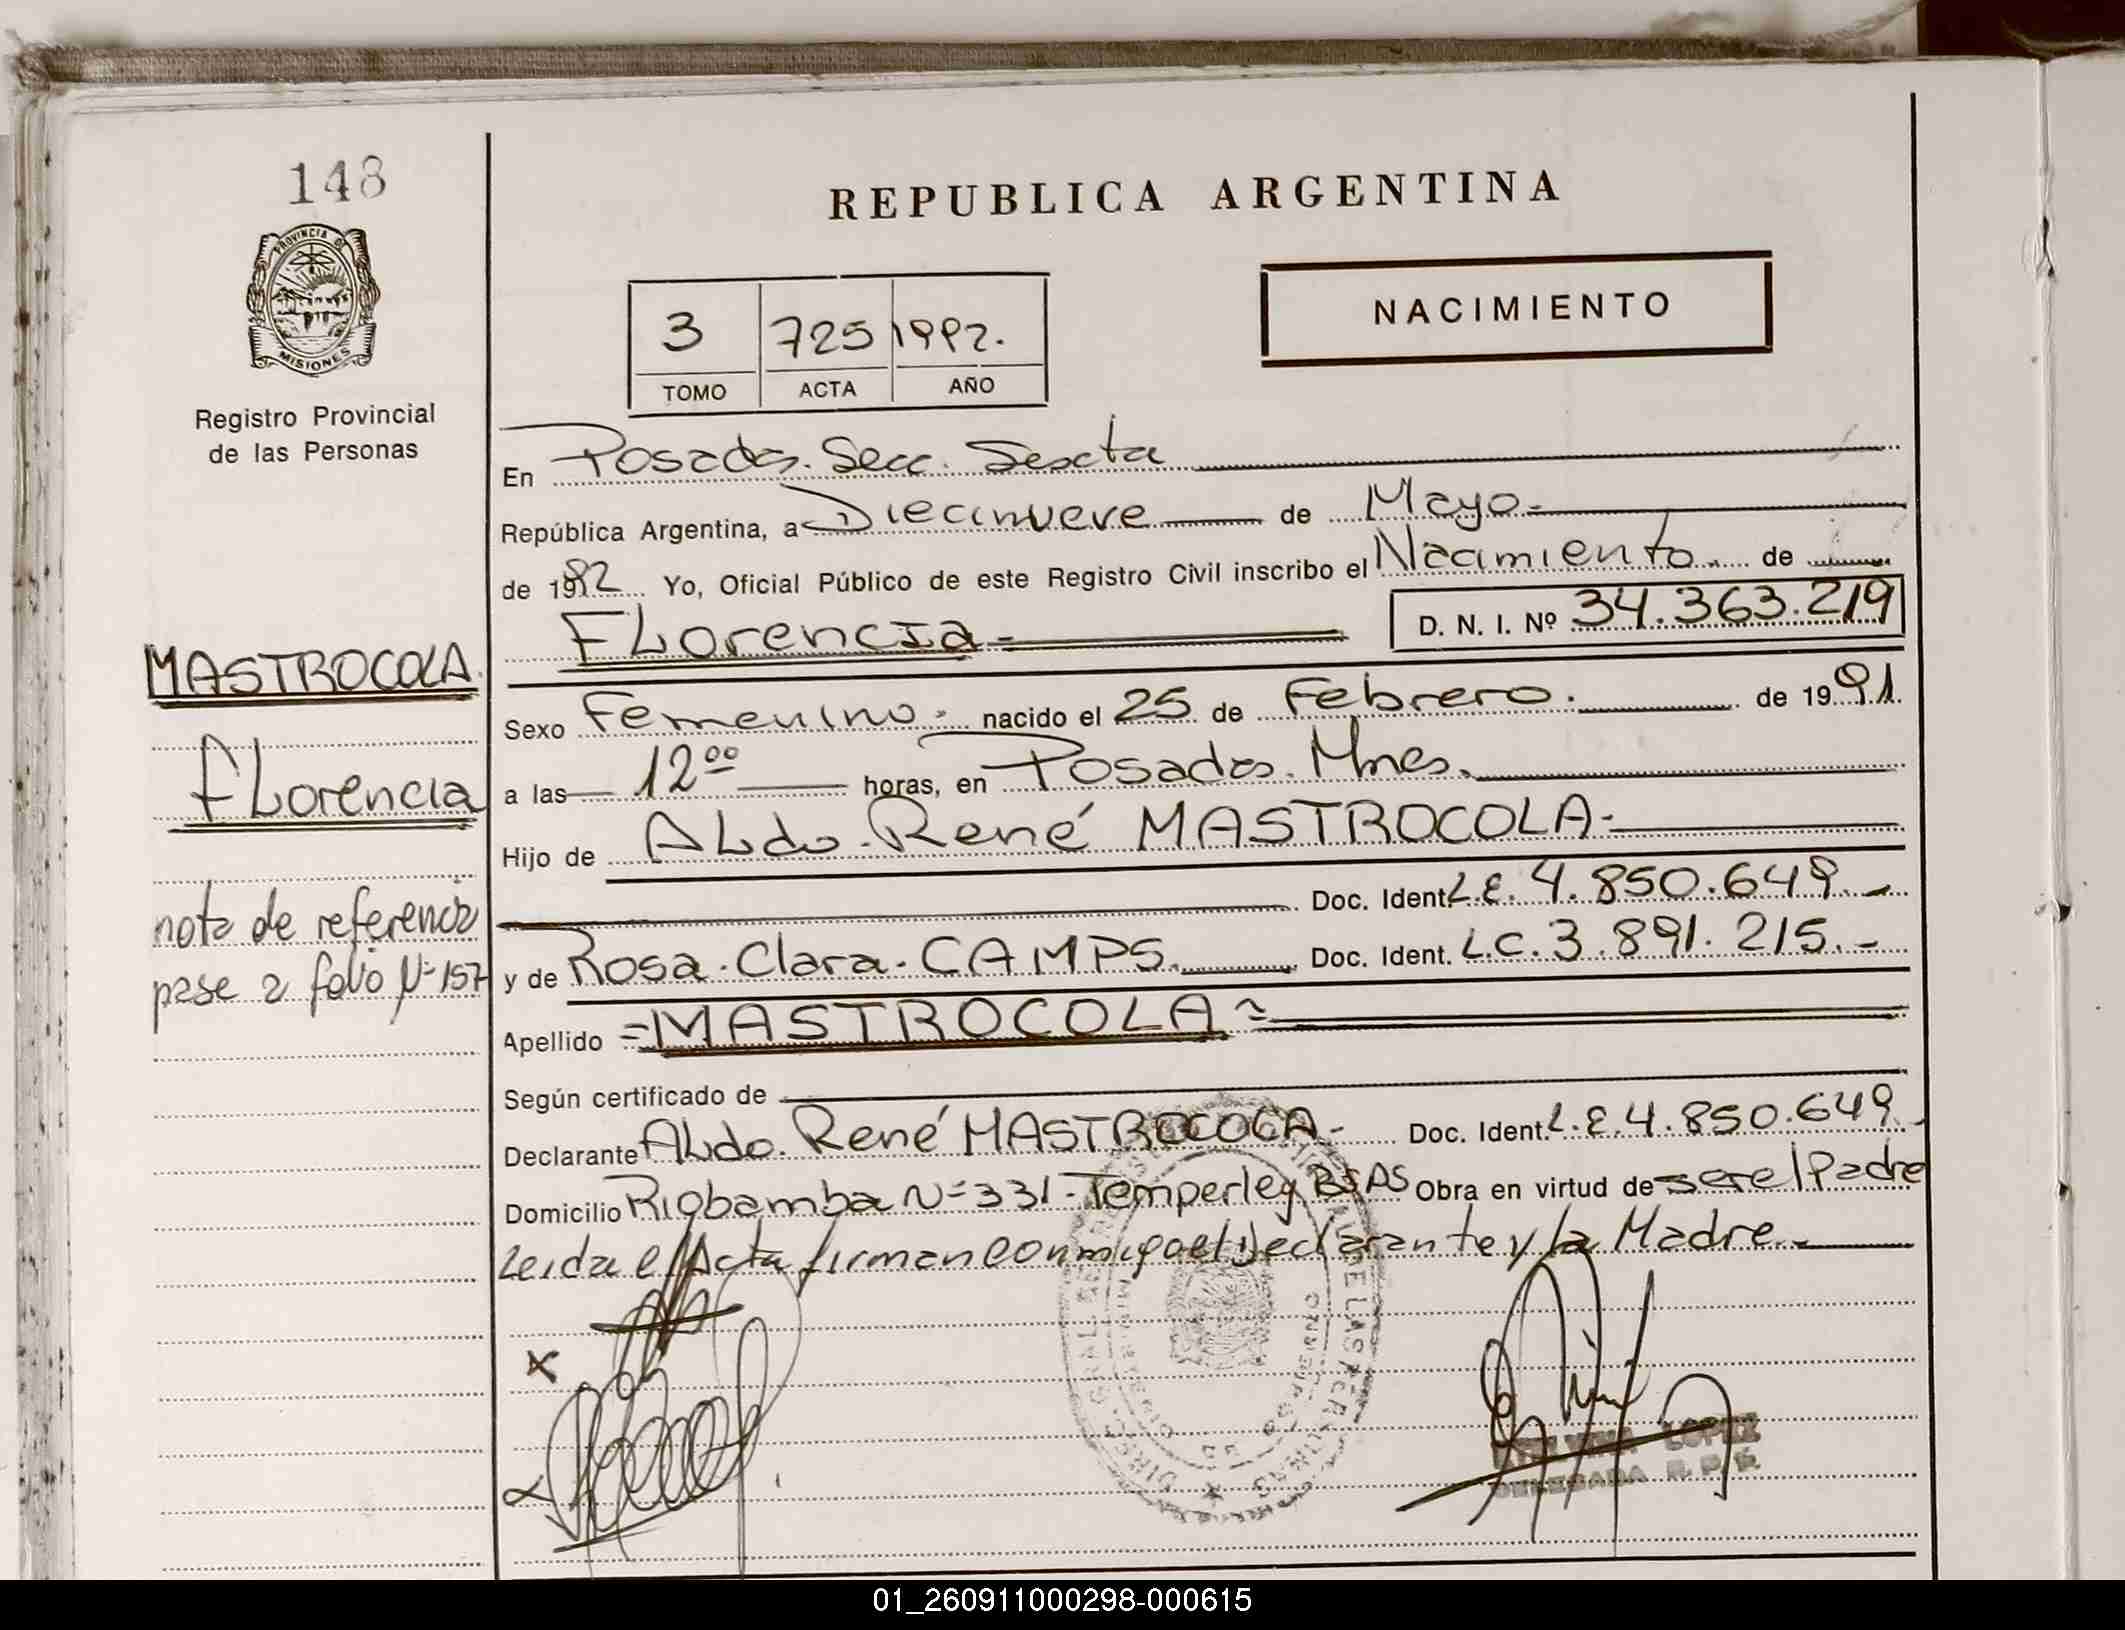 148
REPUBLICA ARGENTINA
PROVINCIA DE
MISIONES
NACIMIENTO
3 725 1992.
TOMO ACTA AÑO
Registro Provincial
de las Personas
En Posadas. Secc. Sexta
República Argentina, a Diecinueve de Mayo
de 1992 Yo, Oficial Público de este Registro Civil inscribo el Nacimiento de
Florencia D. N. I. Nº 34.363.219
MASTROCOLA.
Florencia
Sexo Femenino. nacido el 25 de Febrero. de 1991.
a las 12⁰⁰ horas, en Posadas. Mnes.
Hijo de Aldo. René MASTROCOLA-
Doc. Ident. L.E. 4.850.649.-
nota de referencia
pase a folio Nº 157
y de Rosa. Clara. CAMPS. Doc. Ident. L.C. 3.891.215.-
Apellido =MASTROCOLA=
Según certificado de
Declarante Aldo. René MASTROCOLA- Doc. Ident. L.E. 4.850.649-
Domicilio Riobamba Nº 331- Temperley BSAS Obra en virtud de ser el Padre
Leida el Acta firman conmigo el Declarante y la Madre.-
LOPEZ
DELEGADA R. P. P.
01_260911000298-000615